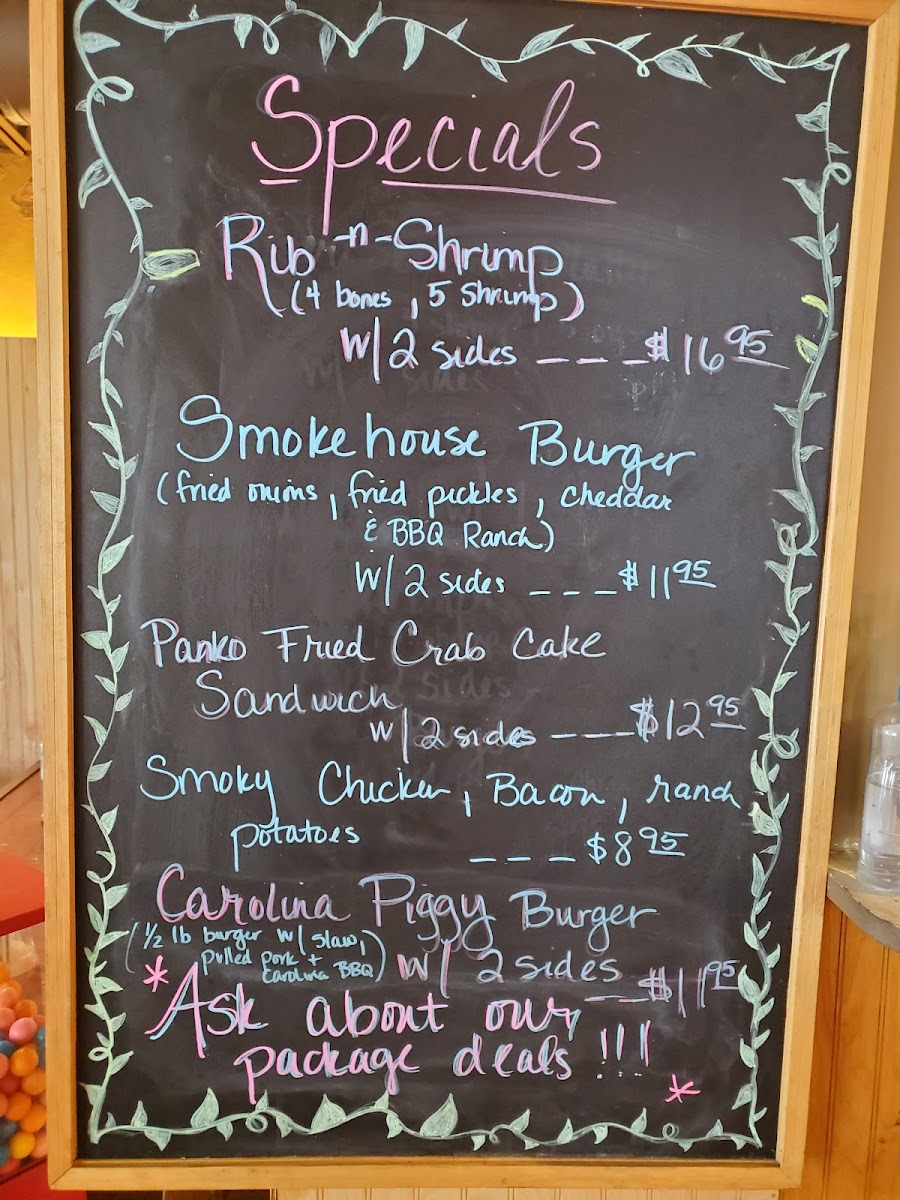 Specials
Rib -n- Shrimp
(4 bones, 5 Shrimp)
W/ 2 sides --- $16.95
Smokehouse Burger
(fried onions, fried pickles, cheddar
& BBQ Ranch)
W/ 2 sides --- $11.95
Panko Fried Crab Cake
Sandwich
w/ 2 sides --- $12.95
Smoky Chicken, Bacon, ranch
potatoes --- $8.95
Carolina Piggy Burger
(1/2 lb burger w/ slaw,
pulled pork +
Carolina BBQ) w/ 2 sides -- $11.95
*Ask about our
package deals!!! *